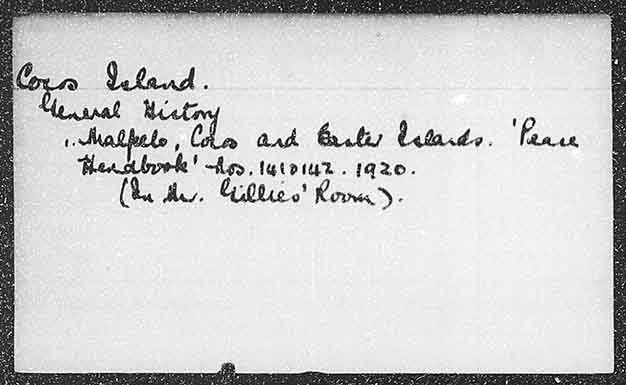 Cocos Island.
General History
1. Malpelo, Cocos and Easter Islands. 'Peace
Handbook' Nos. 141 & 142. 1920.
(In Mr. Gillies' Room).